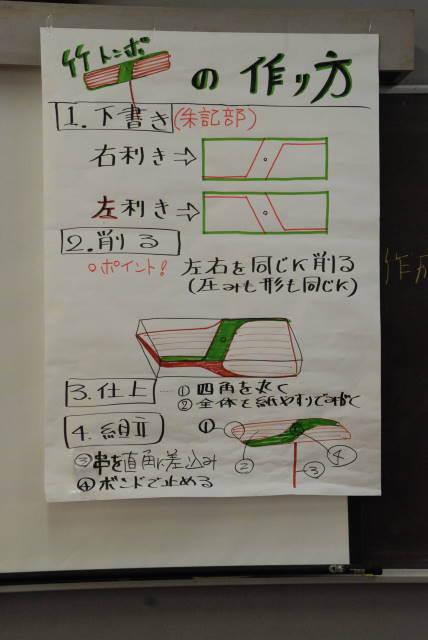 竹トンボの作り方
1.下書き(朱記部)
右利き⇨
左利き⇨
2.削る
○ポイント! 左右を同じに削る
(圧みも形も同じに)
3.仕上 ①四角を丸く
②全体を紙やすりでみがく
4.組立 ①
② ③ ④
③串を直角に差込み
④ボンドで止める
作